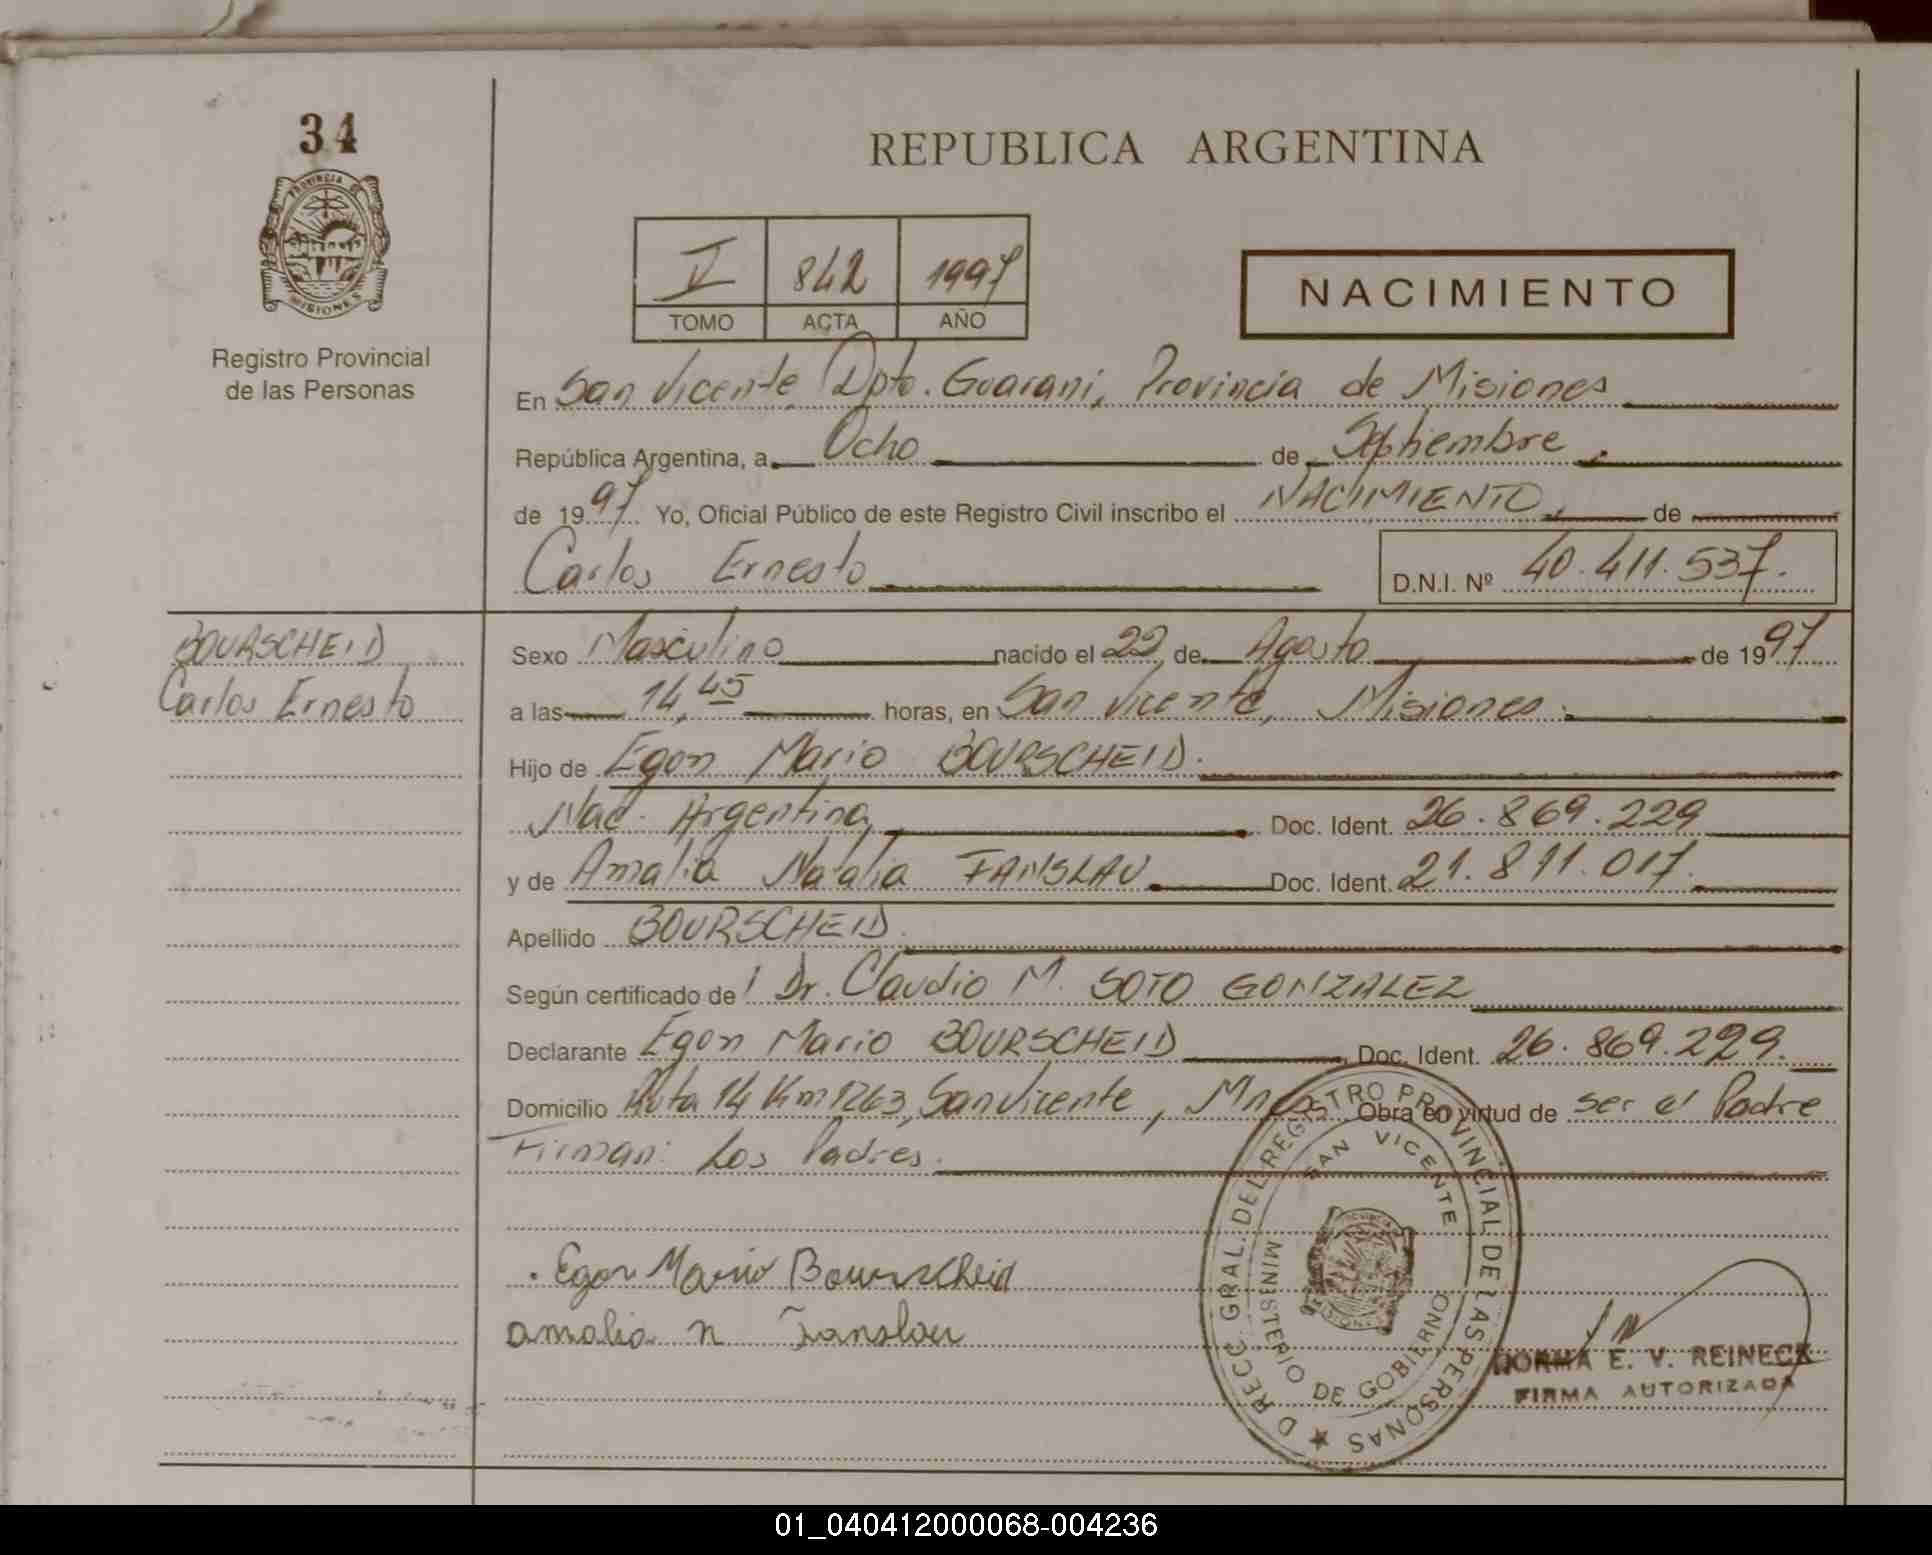 34
PROVINCIA DE
MISIONES
Registro Provincial
de las Personas
REPUBLICA ARGENTINA
V 842 1997
TOMO ACTA AÑO
NACIMIENTO
En San Vicente Dpto. Guarani, Provincia de Misiones
República Argentina, a Ocho de Septiembre
de 1997 Yo, Oficial Público de este Registro Civil inscribo el NACIMIENTO, de
Carlos Ernesto D.N.I. Nº 40.411.537.
BOURSCHEID
Carlos Ernesto
Sexo Masculino nacido el 22 de Agosto de 1997
a las 14,45 horas, en San Vicente, Misiones.
Hijo de Egon Mario BOURSCHEID.
Nac. Argentina, Doc. Ident. 26.869.229
y de Amalia Natalia FANSLAU Doc. Ident. 21.811.017.
Apellido BOURSCHEID.
Según certificado del Dr. Claudio M. SOTO GONZALEZ
Declarante Egon Mario BOURSCHEID Doc. Ident. 26.869.229.
Domicilio Ruta 14 Km 1263, San Vicente, Mnes. Obra en virtud de ser el Padre
Firman: Los Padres.
Egon Mario Bourscheid
amalia n Fanslau
DIRECC. GRAL. DEL REGISTRO PROVINCIAL DE LAS PERSONAS
SAN VICENTE
MINISTERIO DE GOBIERNO
NORMA E. V. REINECK
FIRMA AUTORIZADA
01_040412000068-004236